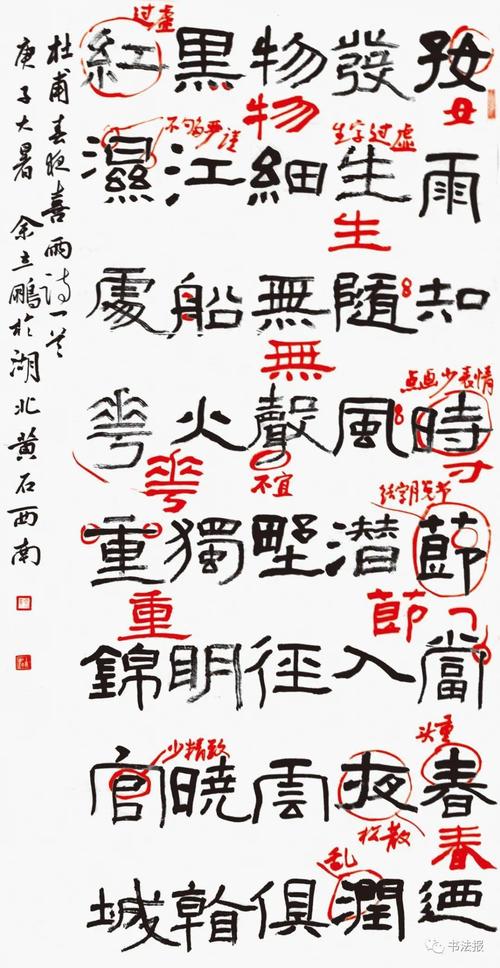 好雨知時節當春迺
發生隨風潛入夜潤
物細無聲野徑雲俱
黑江船火獨明曉看
紅濕處華重錦官城
杜甫春夜喜雨诗一首
庚子大暑 余立鹏於湖北黄石西南
过虚
丑
物
不够严谨
生字过虚
生
無
点画少表情
寸
華
不宜
结字脱节
節
重
头重
少精致
松散
春
乱
书法报